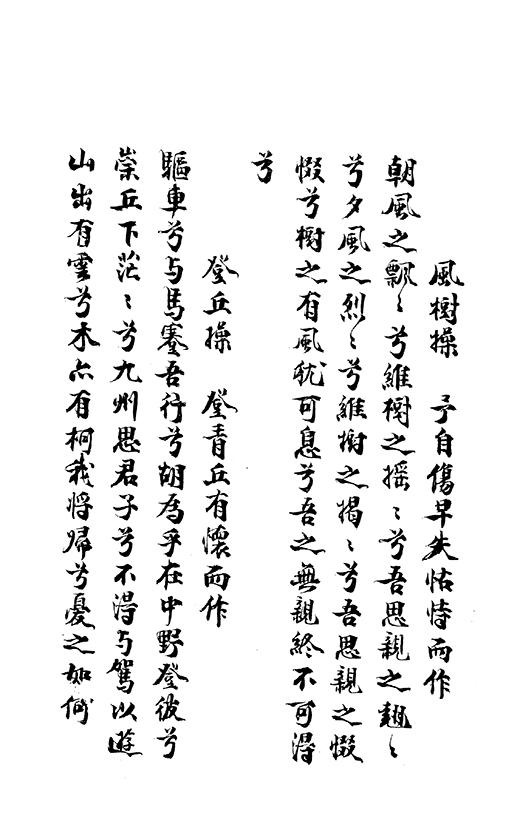 風樹操　予自傷早失怙恃而作
朝風之飄〻兮維樹之搖〻兮吾思親之翹〻
兮夕風之烈〻兮維樹之揭〻兮吾思親之惙
惙兮樹之有風猶可息兮吾之無親終不可得
兮
登丘操　登青丘有懷而作
驅車兮与馬蹇吾行兮胡為乎在中野登彼兮
崇丘下茫〻兮九州思君子兮不得与駕以遊
山出有雲兮木亦有柯我將歸兮憂之如何